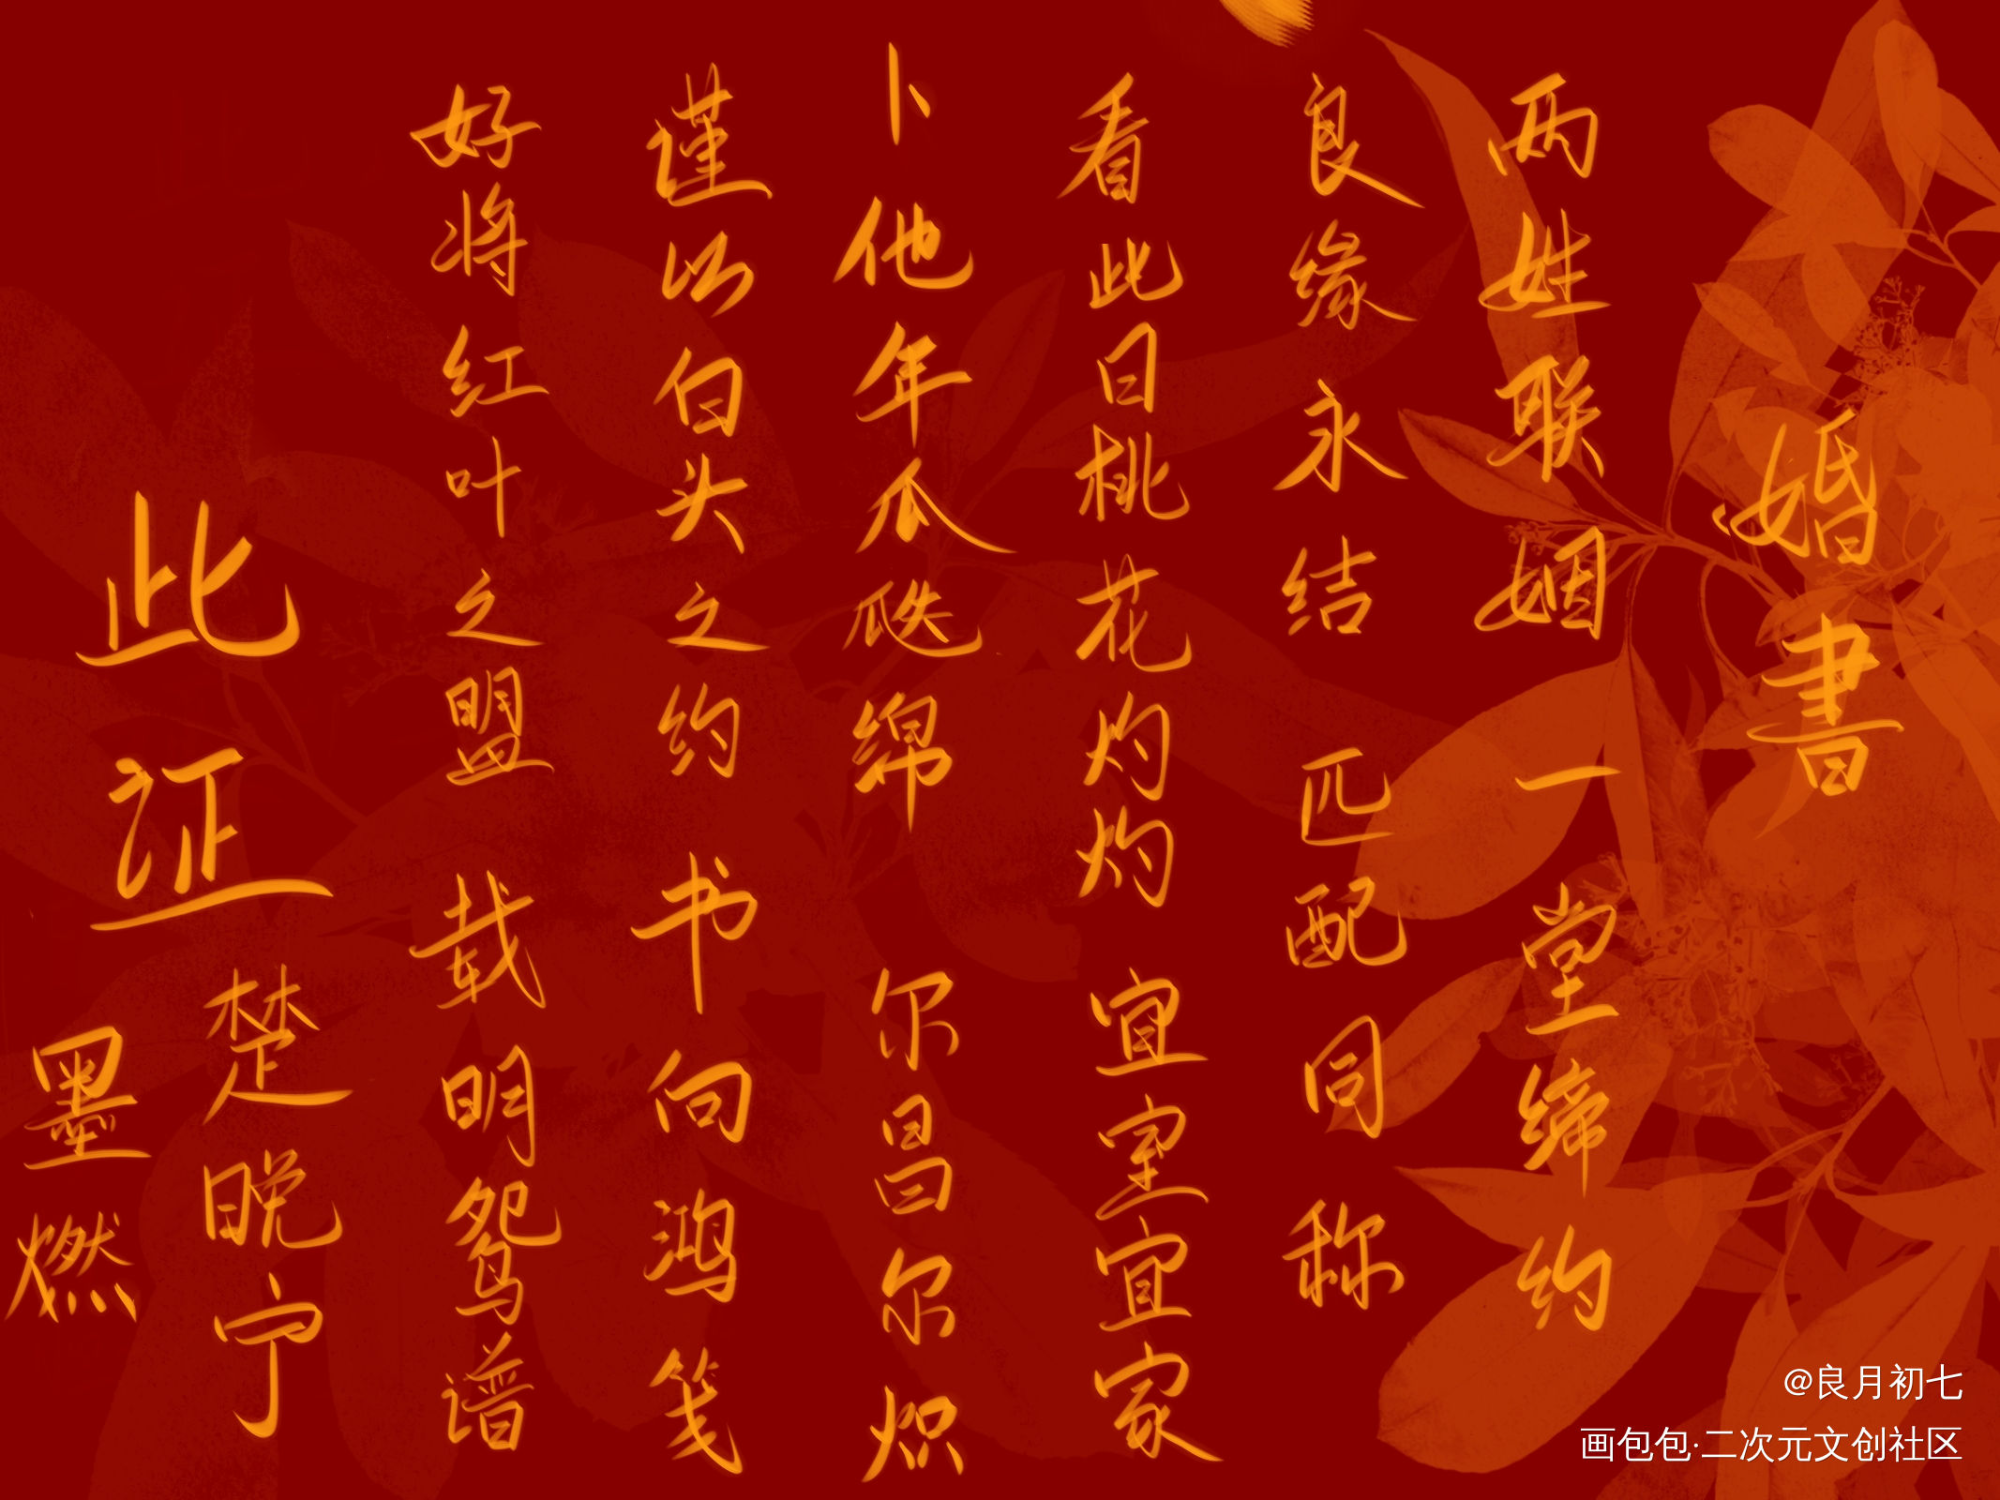 婚書
两姓联姻 一堂缔约
良缘永结 匹配同称
看此日桃花灼灼 宜室宜家
卜他年瓜瓞绵绵 尔昌尔炽
谨以白头之约 书向鸿笺
好将红叶之盟 载明鸳谱
此证
楚晚宁
墨燃
@良月初七
画包包·二次元文创社区